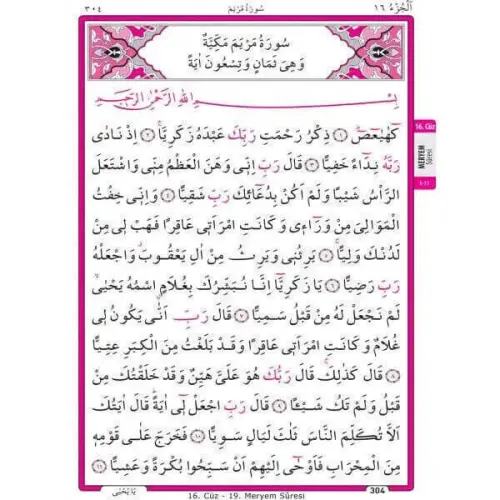 اَلْجُزْءُ ١٦ سُورَةُ مَرْيَمَ ٣٠٤
سُورَةُ مَرْيَمَ مَكِّيَّةٌ
وَهِىَ ثَمَانٍ وَتِسْعُونَ اٰيَةً
بِسْمِ اللّٰهِ الرَّحْمٰنِ الرَّحِيمِ
كٓهٰيٰعٓصٓ ﴿١﴾ ذِكْرُ رَحْمَتِ رَبِّكَ عَبْدَهُ زَكَرِيَّا ﴿٢﴾ اِذْ نَادٰى
رَبَّهُ نِدَٓاءً خَفِيًّا ﴿٣﴾ قَالَ رَبِّ اِنّٖى وَهَنَ الْعَظْمُ مِنّٖى وَاشْتَعَلَ
الرَّأْسُ شَيْبًا وَلَمْ اَكُنْ بِدُعَٓائِكَ رَبِّ شَقِيًّا ﴿٤﴾ وَاِنّٖى خِفْتُ
الْمَوَالِىَ مِنْ وَرَٓاءٖى وَكَانَتِ امْرَاَتٖى عَاقِرًا فَهَبْ لٖى مِنْ
لَدُنْكَ وَلِيًّا ﴿٥﴾ يَرِثُنٖى وَيَرِثُ مِنْ اٰلِ يَعْقُوبَ وَاجْعَلْهُ
رَبِّ رَضِيًّا ﴿٦﴾ يَا زَكَرِيَّٓا اِنَّا نُبَشِّرُكَ بِغُلَامٍ اسْمُهُ يَحْيٰى
لَمْ نَجْعَلْ لَهُ مِنْ قَبْلُ سَمِيًّا ﴿٧﴾ قَالَ رَبِّ اَنّٰى يَكُونُ لٖى
غُلَامٌ وَكَانَتِ امْرَاَتٖى عَاقِرًا وَقَدْ بَلَغْتُ مِنَ الْكِبَرِ عِتِيًّا
﴿٨﴾ قَالَ كَذٰلِكَ قَالَ رَبُّكَ هُوَ عَلَىَّ هَيِّنٌ وَقَدْ خَلَقْتُكَ مِنْ
قَبْلُ وَلَمْ تَكُ شَيْئًا ﴿٩﴾ قَالَ رَبِّ اجْعَلْ لٖٓى اٰيَةً قَالَ اٰيَتُكَ
اَلَّا تُكَلِّمَ النَّاسَ ثَلٰثَ لَيَالٍ سَوِيًّا ﴿١٠﴾ فَخَرَجَ عَلٰى قَوْمِهٖ
مِنَ الْمِحْرَابِ فَاَوْحٰٓى اِلَيْهِمْ اَنْ سَبِّحُوا بُكْرَةً وَعَشِيًّا ﴿١١﴾
يَا يَحْيٰى
304
16. Cüz - 19. Meryem Sûresi
16. Cüz
MERYEM
Sûresi
1-11